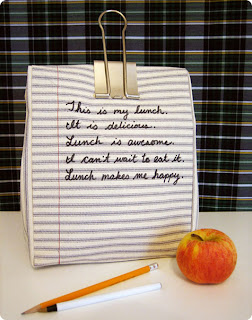 This is my lunch.
It is delicious.
Lunch is awesome.
I can't wait to eat it.
Lunch makes me happy.